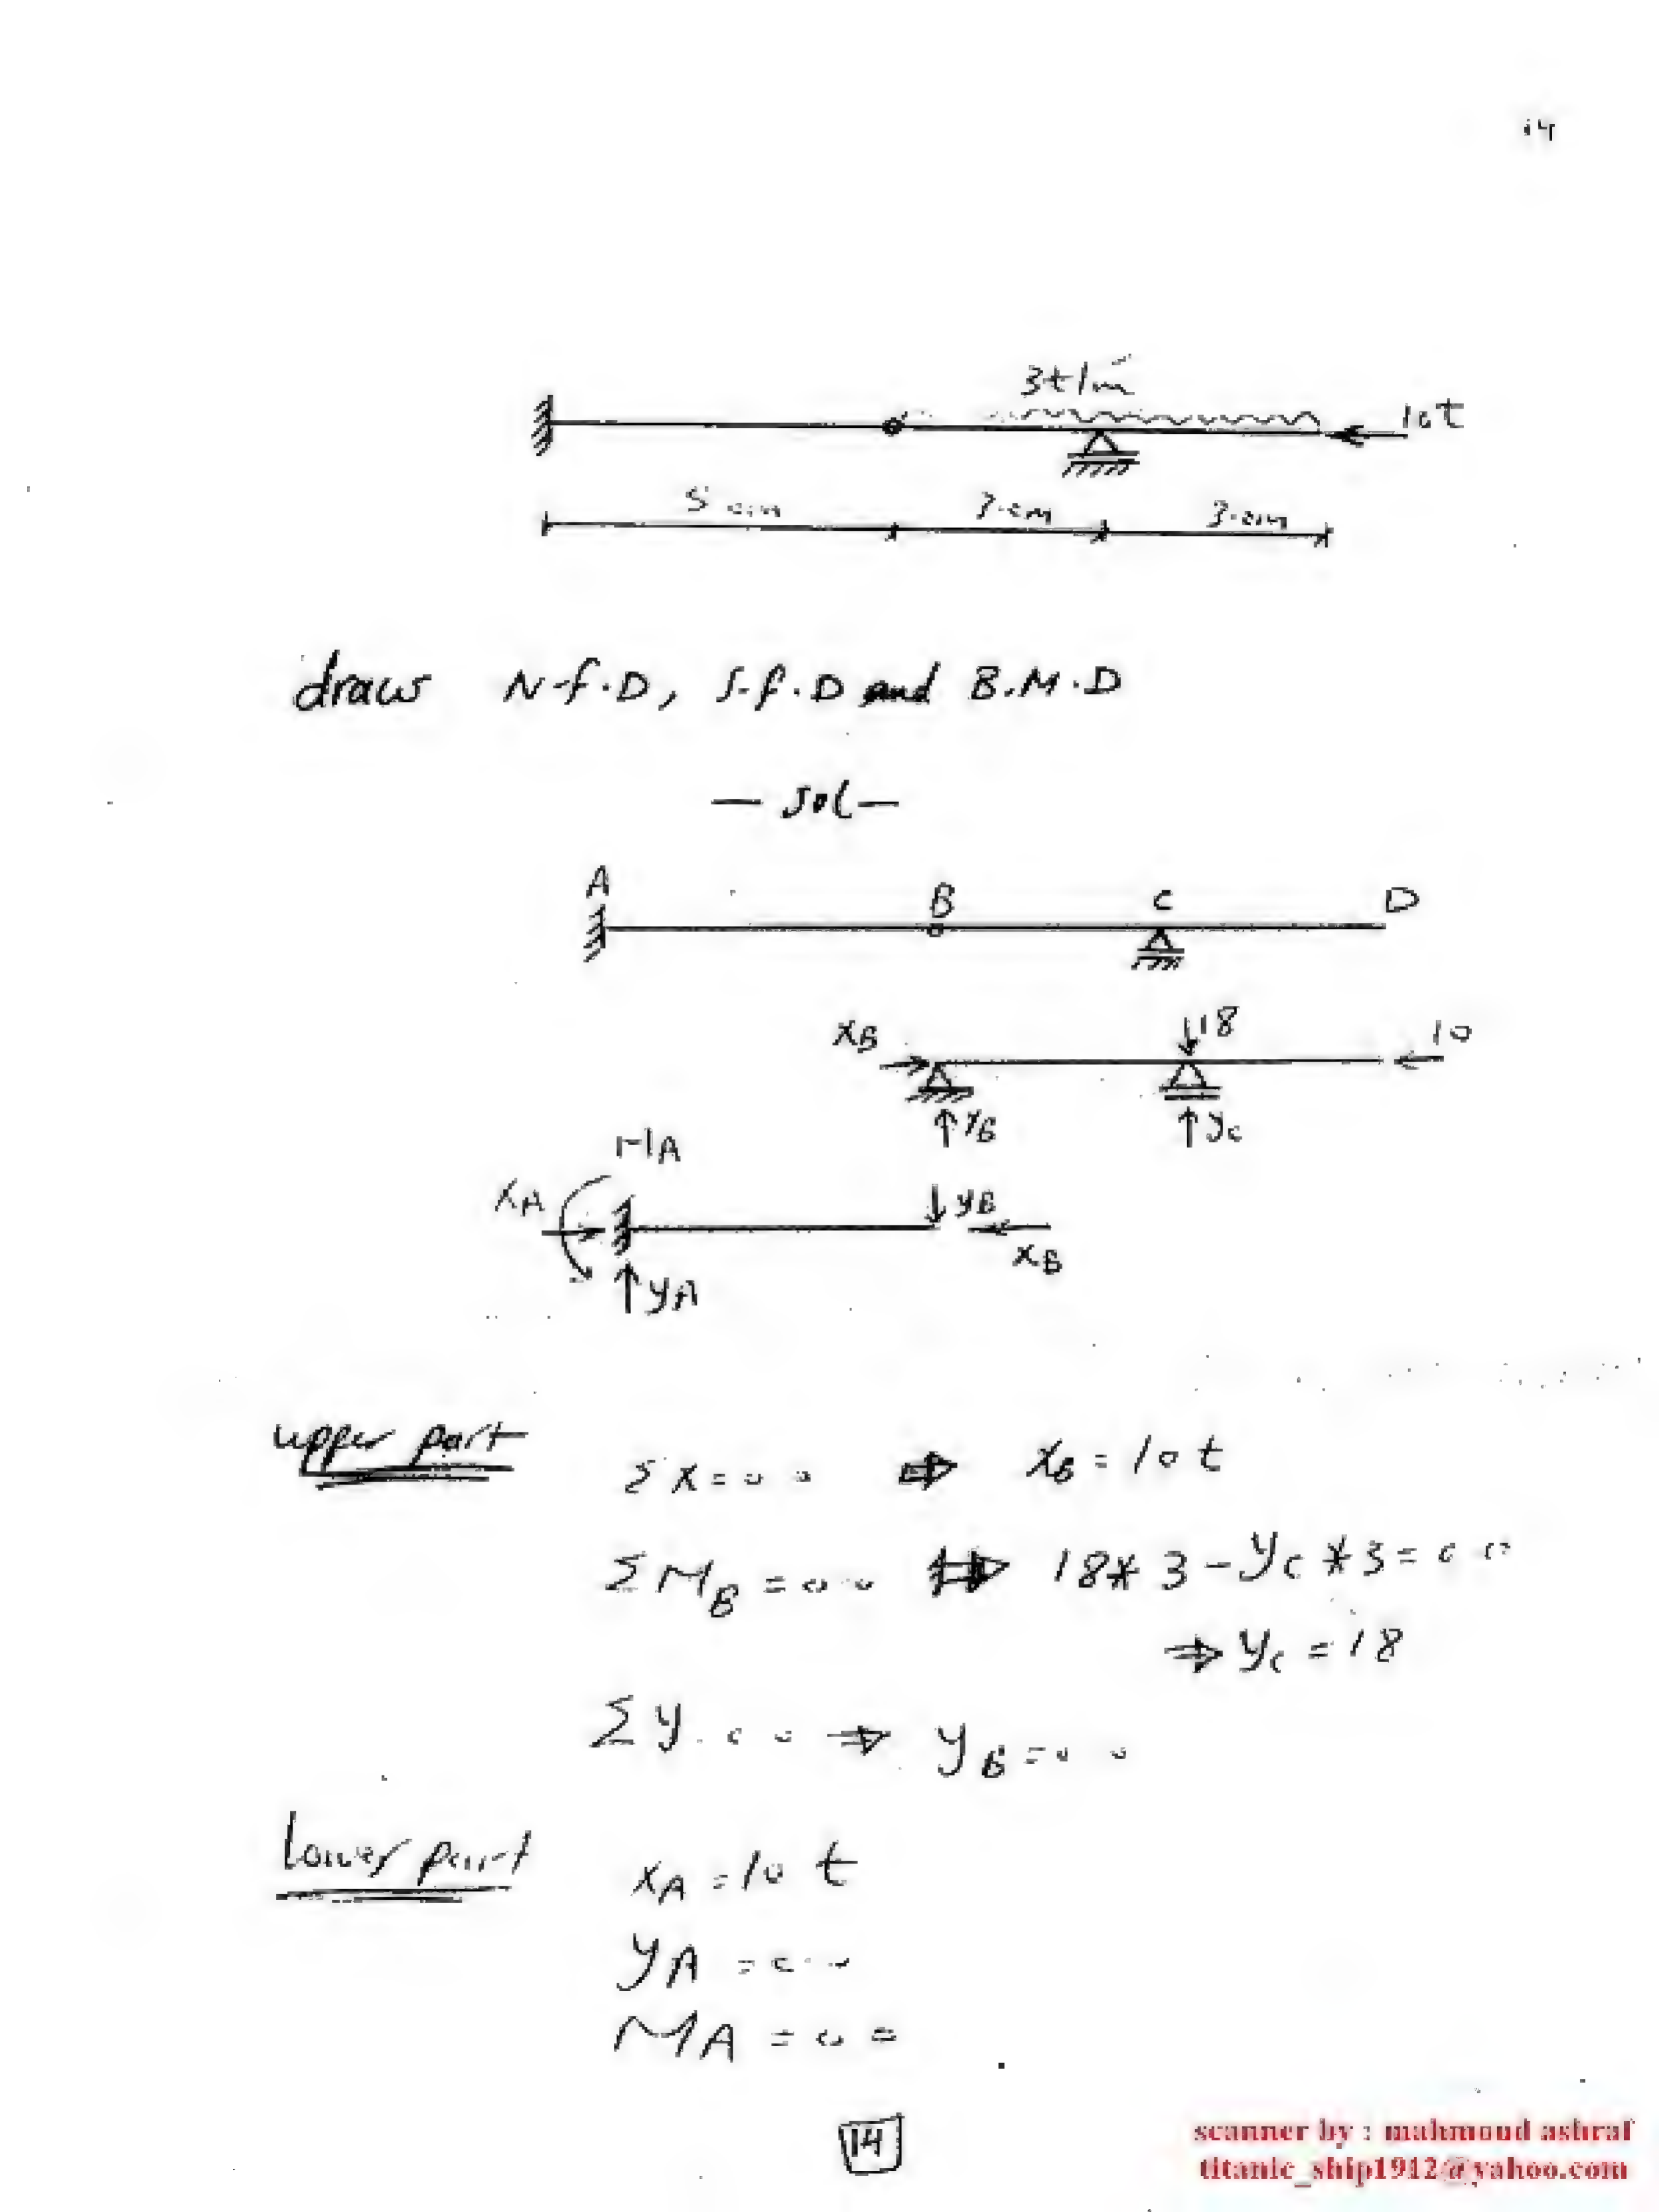 14
3t/m'
10t
5.0m 3.0m 3.0m
draws N.f.D, S.f.D and B.M.D
— sol —
A B C D
XB 18 10
YB YC
MA
XA YB
XB
YA
upper part ΣX=0.0 ⇒ XB = 10 t
ΣMB = 0.0 ⇒ 18*3 - YC*3 = 0.0
⇒ YC = 18
ΣY = 0.0 ⇒ YB = 0.0
Lower part XA = 10 t
YA = 0.0
MA = 0.0
14
scanner by : mahmoud ashraf
titanic_ship1912@yahoo.com